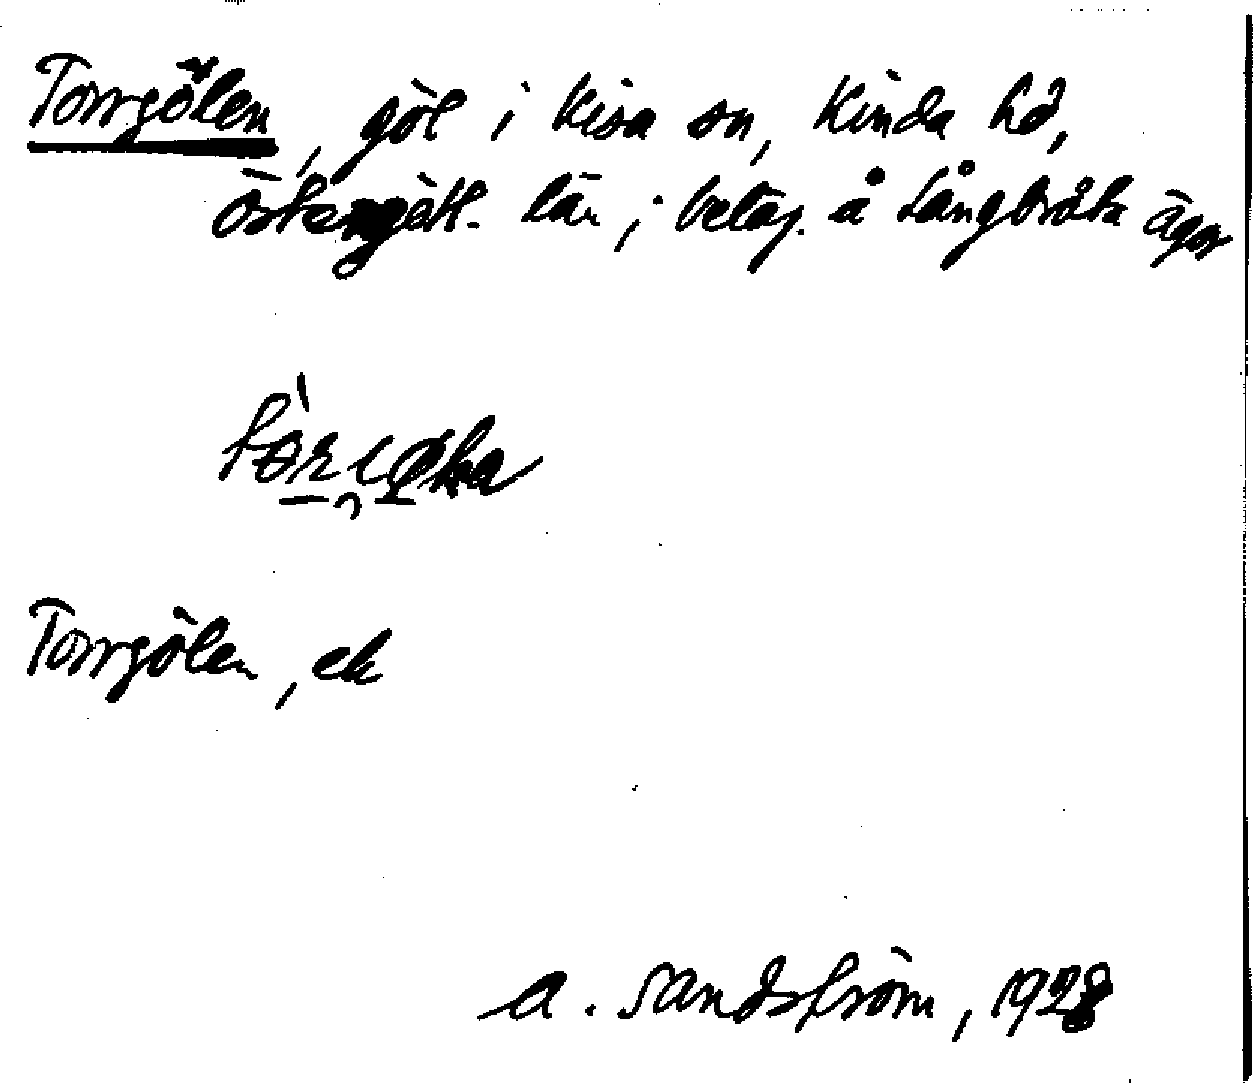 Torrgölen, göl i Kisa sn, Kinda hd,
Östergötl. län; beläg. å Långbråta ägor
Torrgölen, ek
A. Sandström, 1928